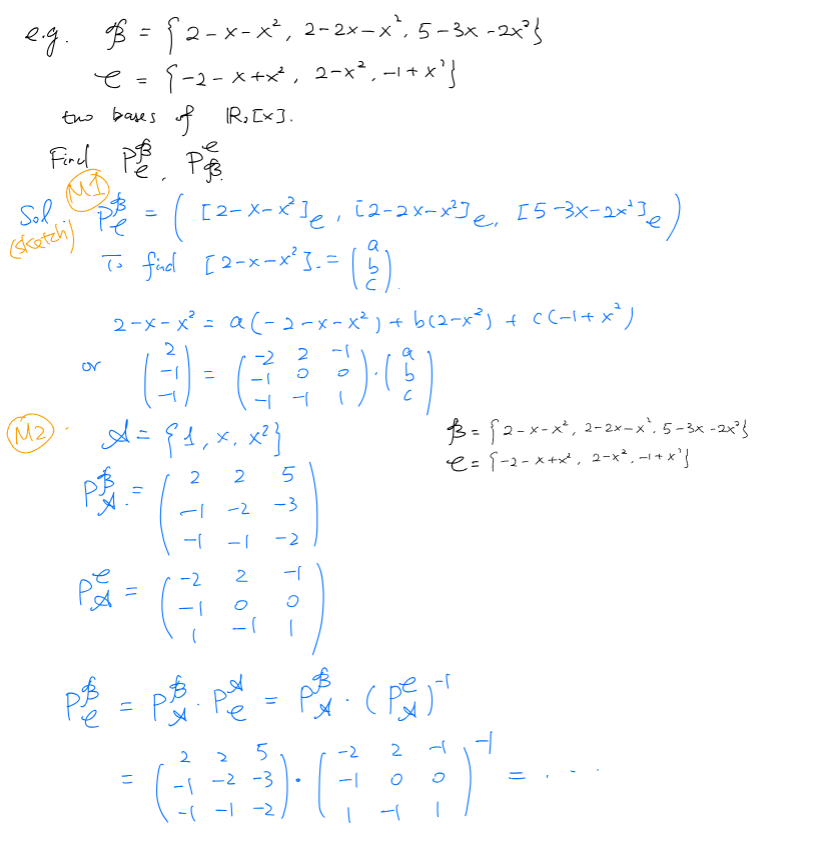 e.g. 𝓑 = { 2 - x - x², 2 - 2x - x², 5 - 3x - 2x² }
𝓒 = { -2 - x + x², 2 - x², -1 + x² }
two bases of ℝ₂[x].
Find P_𝓒^𝓑, P_𝓑^𝓒.
M1
Sol. P_𝓒^𝓑 = ( [2 - x - x²]_𝓒, [2 - 2x - x²]_𝓒, [5 - 3x - 2x²]_𝓒 )
(sketch)
To find [2 - x - x²]. = (a b c).
2 - x - x² = a(-2 - x - x²) + b(2 - x²) + c(-1 + x²)
or (2 -1 -1) = (-2 2 -1; -1 0 0; -1 -1 1) · (a b c)
M2 . 𝓐 = { 1, x, x² }
𝓑 = { 2 - x - x², 2 - 2x - x², 5 - 3x - 2x² }
𝓒 = { -2 - x + x², 2 - x², -1 + x² }
P_𝓐^𝓑 = (2 2 5; -1 -2 -3; -1 -1 -2)
P_𝓐^𝓒 = (-2 2 -1; -1 0 0; 1 -1 1)
P_𝓒^𝓑 = P_𝓐^𝓑 · P_𝓒^𝓐 = P_𝓐^𝓑 · (P_𝓐^𝓒)⁻¹
= (2 2 5; -1 -2 -3; -1 -1 -2) · (-2 2 -1; -1 0 0; 1 -1 1)⁻¹ = . . .